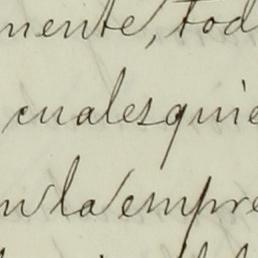 mente, tod
cualesquie
n la empre